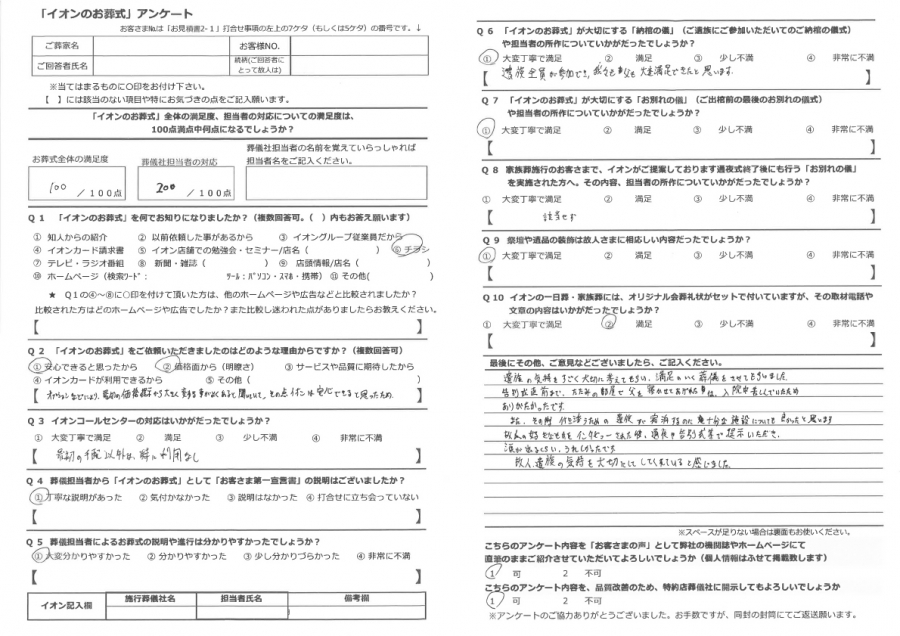 「イオンのお葬式」アンケート
お客さま№は「お見積書2-1」打合せ事項の左上の7ケタ(もしくは5ケタ)の番号です。↓
ご葬家名 お客様NO.
ご回答者氏名 続柄(ご回答者にとって故人は)
※当てはまるものに○印をお付け下さい。
【 】には該当のない項目や特にお気づきの点をご記入願います。
「イオンのお葬式」全体の満足度、担当者の対応についての満足度は、
100点満点中何点になるでしょうか?
お葬式全体の満足度 葬儀社担当者の対応 葬儀社担当者の名前を覚えていらっしゃれば
担当者名をご記入ください。
100 /100点 200 /100点
Q1 「イオンのお葬式」を何でお知りになりましたか?(複数回答可。( )内もお答え願います)
① 知人からの紹介 ② 以前依頼した事があるから ③ イオングループ従業員だから
④ イオンカード請求書 ⑤ イオン店舗での勉強会・セミナー/店名( ) ⑥ チラシ
⑦ テレビ・ラジオ番組 ⑧ 新聞・雑誌( ) ⑨ 店頭情報/店名( )
⑩ ホームページ(検索ワード: ツール:パソコン・スマホ・携帯) ⑪ その他( )
★ Q1の④~⑧に○印を付けて頂いた方は、他のホームページや広告などと比較されましたか?
比較された方はどのホームページや広告でしたか?また比較し迷われた点がありましたらお教えください。
【 】
Q2 「イオンのお葬式」をご依頼いただきましたのはどのような理由からですか?(複数回答可)
① 安心できると思ったから ② 価格面から(明瞭さ) ③ サービスや品質に期待したから
④ イオンカードが利用できるから ⑤ その他( )
Q3 イオンコールセンターの対応はいかがだったでしょうか?
① 大変丁寧で満足 ② 満足 ③ 少し不満 ④ 非常に不満
【 最初の手配以外は、特に利用なし 】
Q4 葬儀担当者から「イオンのお葬式」として「お客さま第一宣言書」の説明はございましたか?
① 丁寧な説明があった ② 気付かなかった ③ 説明はなかった ④ 打合せに立ち会っていない
【 】
Q5 葬儀担当者によるお葬式の説明や進行は分かりやすかったでしょうか?
① 大変分かりやすかった ② 分かりやすかった ③ 少し分かりづらかった ④ 非常に不満
【 】
イオン記入欄 施行葬儀社名 担当者氏名 備考欄
Q6 「イオンのお葬式」が大切にする「納棺の儀」(ご遺族にご参加いただいてのご納棺の儀式)
や担当者の所作についていかがだったでしょうか?
① 大変丁寧で満足 ② 満足 ③ 少し不満 ④ 非常に不満
【 遺族全員が参加でき、 大変満足できたと思います。 】
Q7 「イオンのお葬式」が大切にする「お別れの儀」(ご出棺前の最後のお別れの儀式)
や担当者の所作についていかがだったでしょうか?
① 大変丁寧で満足 ② 満足 ③ 少し不満 ④ 非常に不満
【 】
Q8 家族葬施行のお客さまで、イオンがご提案しております通夜式終了後にも行う「お別れの儀」
を実施された方へ。その内容、担当者の所作についていかがだったでしょうか?
① 大変丁寧で満足 ② 満足 ③ 少し不満 ④ 非常に不満
【 該当せず 】
Q9 祭壇や遺品の装飾は故人さまに相応しい内容だったでしょうか?
① 大変丁寧で満足 ② 満足 ③ 少し不満 ④ 非常に不満
【 】
Q10 イオンの一日葬・家族葬には、オリジナル会葬礼状がセットで付いていますが、その取材電話や
文章の内容はいかがだったでしょうか?
① 大変丁寧で満足 ② 満足 ③ 少し不満 ④ 非常に不満
【 】
最後にその他、ご意見などございましたら、ご記入ください。
遺族の気持をすごく大切に考えてもらい、満足のいく葬儀をさせてもらいました。
告別式直前まで、たたみの部屋で父を寝かせてあげられた事は、入院中苦しんでいたため
ありがたかったです。
涙が出るくらい、うれしかったです
故人、遺族の気持を大切にしてくれていると感じました。
※スペースが足りない場合は裏面もお使いください。
こちらのアンケート内容を「お客さまの声」として弊社の機関誌やホームページにて
直筆のままご紹介させていただいてよろしいでしょうか(個人情報はふせて掲載致します)
1 可 2 不可
こちらのアンケート内容を、品質改善のため、特約店葬儀社に開示してもよろしいでしょうか
1 可 2 不可
※アンケートのご協力ありがとうございました。お手数ですが、同封の封筒にてご返送願います。